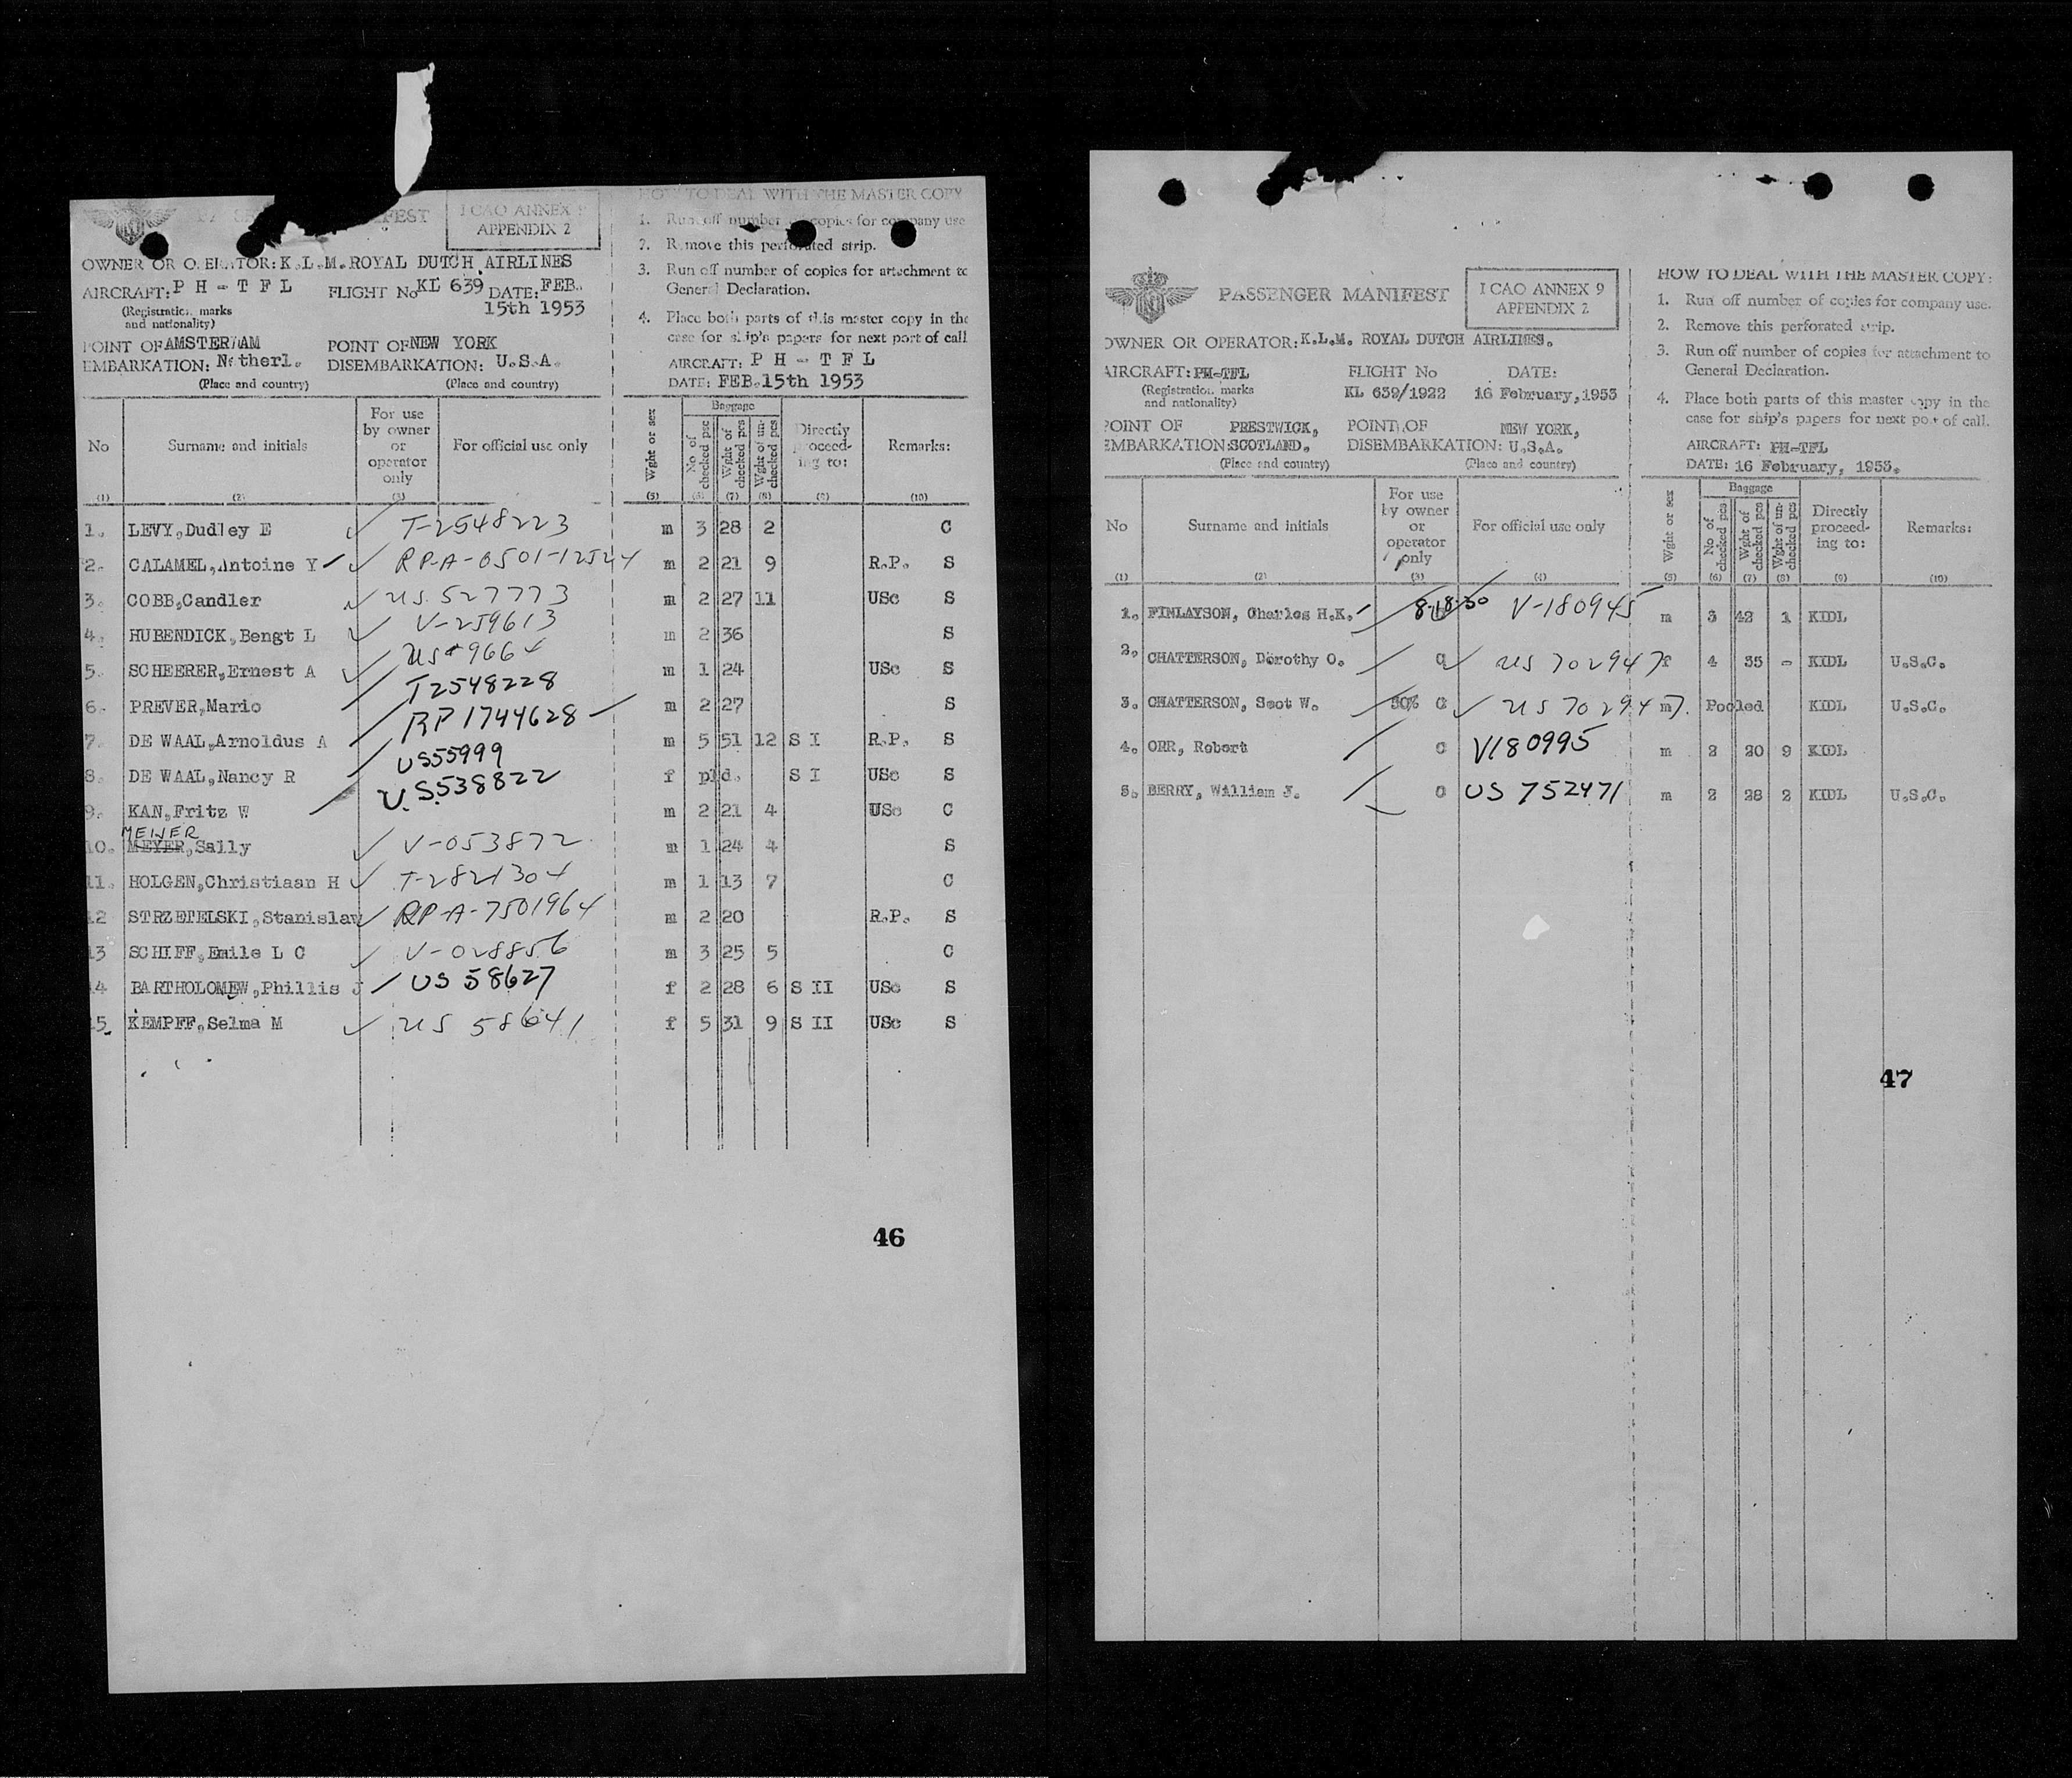 MANIFEST
I CAO ANNEX 9
APPENDIX 2
OWNER OR OPERATOR: K.L.M. ROYAL DUTCH AIRLINES
AIRCRAFT: P H - T F L FLIGHT No KL 639 DATE: FEB.
15th 1953
(Registration marks
and nationality)
POINT OF AMSTERDAM POINT OF NEW YORK
EMBARKATION: Netherl. DISEMBARKATION: U.S.A.
(Place and country) (Place and country)
HOW TO DEAL WITH THE MASTER COPY
1. Run off number of copies for company use
2. Remove this perforated strip.
3. Run off number of copies for attachment to
General Declaration.
4. Place both parts of this master copy in the
case for ship's papers for next port of call
AIRCRAFT: P H - T F L
DATE: FEB. 15th 1953
No Surname and initials For use by owner or operator only For official use only Wght or sex Baggage No of checked pcs Wght of checked pcs Wght of un-checked pcs Directly proceed-ing to: Remarks:
(1) (2) (3) (5) (6) (7) (8) (9) (10)
1. LEVY, Dudley E ✓ T-2548223 m 3 28 2 C
2. CALAMEL, Antoine Y ✓ RP-A-0501-12524 m 2 21 9 R.P. S
3. COBB, Candler ✓ US 527773 m 2 27 11 USc S
4. HUBENDICK, Bengt L ✓ V-259613 m 2 36 S
5. SCHEERER, Ernest A ✓ US 9664 m 1 24 USc S
6. PREVER, Mario T2548228 m 2 27 S
7. DE WAAL, Arnoldus A RP 1744628 m 5 51 12 S I R.P. S
8. DE WAAL, Nancy R US55999 f pld. S I USc S
9. KAN, Fritz W U.S.538822 m 2 21 4 USc C
MEIJER
10. MEYER, Sally ✓ V-053872 m 1 24 4 S
11. HOLGEN, Christiaan H ✓ T-2821304 m 1 13 7 C
12 STRZETELSKI, Stanislaw ✓ RP-A-7501964 m 2 20 R.P. S
13 SCHIFF, Emile L C ✓ V-028856 m 3 25 5 C
14 BARTHOLOMEW, Phillis J US 58627 f 2 28 6 S II USc S
15. KEMPFF, Selma M ✓ US 58641 f 5 31 9 S II USc S
46
PASSENGER MANIFEST
I CAO ANNEX 9
APPENDIX 2
OWNER OR OPERATOR: K.L.M. ROYAL DUTCH AIRLINES.
AIRCRAFT: PH-TFL FLIGHT No DATE:
(Registration marks
and nationality) KL 639/1922 16 February, 1953
POINT OF PRESTWICK, POINT OF NEW YORK,
EMBARKATION: SCOTLAND. DISEMBARKATION: U.S.A.
(Place and country) (Place and country)
HOW TO DEAL WITH THE MASTER COPY:
1. Run off number of copies for company use.
2. Remove this perforated strip.
3. Run off number of copies for attachment to
General Declaration.
4. Place both parts of this master copy in the
case for ship's papers for next port of call.
AIRCRAFT: PH-TFL
DATE: 16 February, 1953.
No Surname and initials For use by owner or operator only For official use only Wght or sex Baggage No of checked pcs Wght of checked pcs Wght of un-checked pcs Directly proceed-ing to: Remarks:
(1) (2) (3) (4) (5) (6) (7) (8) (9) (10)
1. FINLAYSON, Charles H.K. 8-18-50 V-180945 m 3 42 1 KIDL
2. CHATTERSON, Dorothy O. C ✓ US 702947 f 4 35 - KIDL U.S.C.
3. CHATTERSON, Scot W. 50% C ✓ US 702947 m Pooled KIDL U.S.C.
4. ORR, Robert C V180995 m 2 20 9 KIDL
5. BERRY, William J. C US 752471 m 2 28 2 KIDL U.S.C.
47